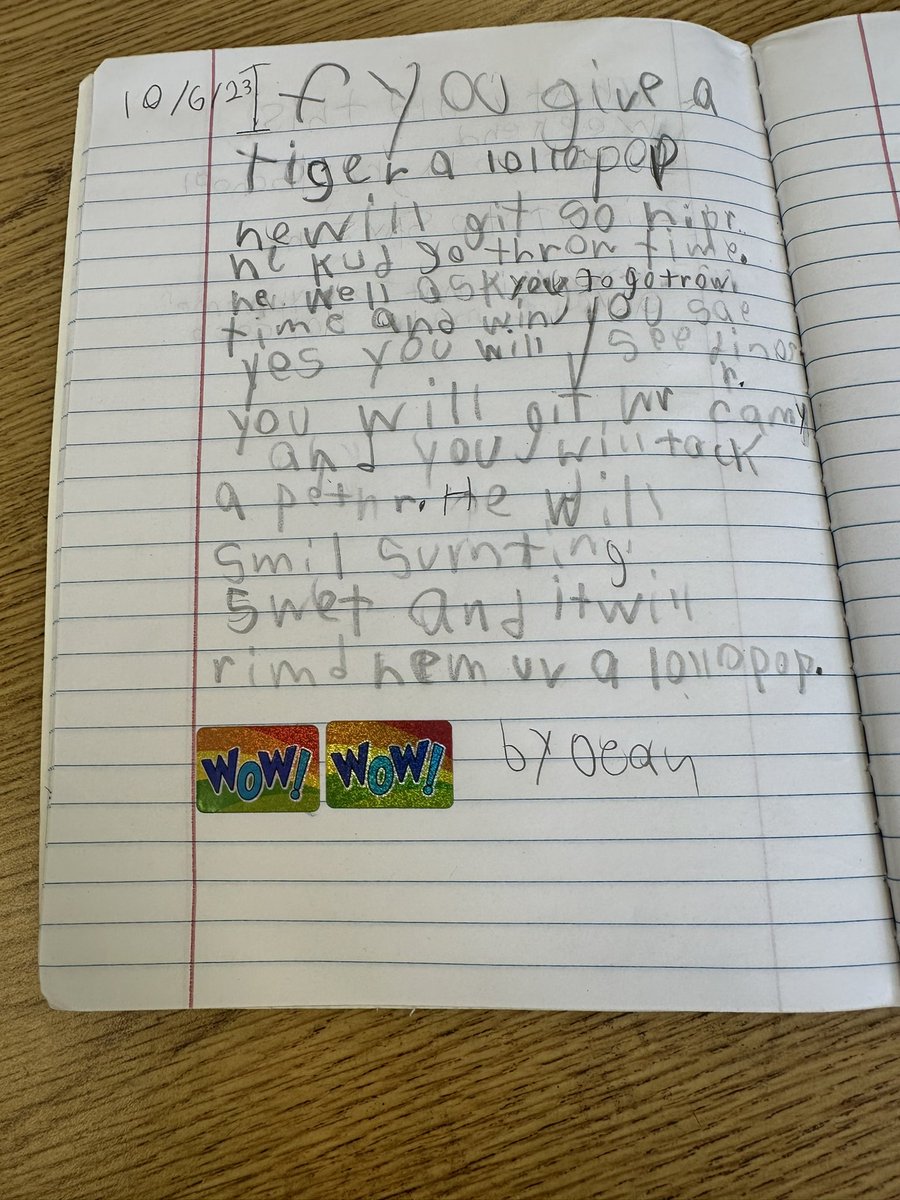 10/6/23 If you give a
tiger a lollapop
he will git so hipr.
he kud go throw time.
he well ask you to go trow
time and win you sae
yes you will see dinos
r.
you will git hr famy
and you will tack
a pethr. He will
smil sumting
swet and it will
rimd hem uv a lollapop.
WOW! WOW! by Dean